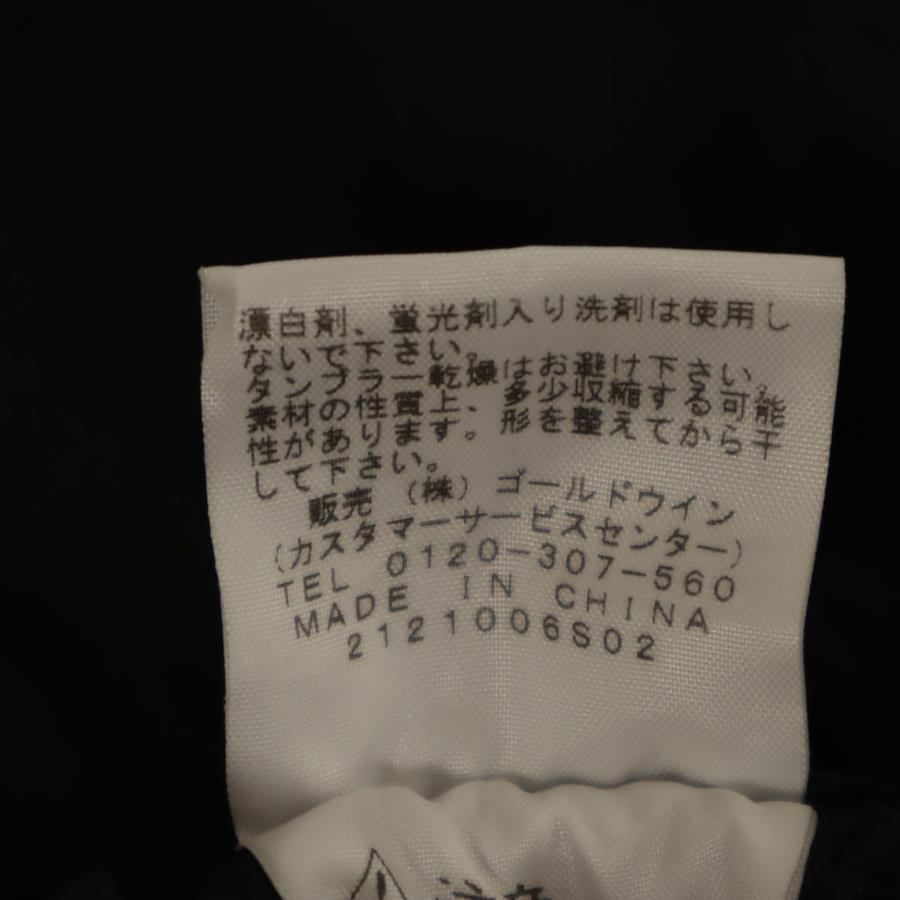 漂白剤、蛍光剤入り洗剤は使用し
ないで下さい。
タンブラー乾燥はお避け下さい。
素材の性質上、多少収縮する可能
性があります。形を整えてから干
して下さい。
販売 (株) ゴールドウイン
(カスタマーサービスセンター)
TEL 0120-307-560
MADE IN CHINA
2121006S02
注意